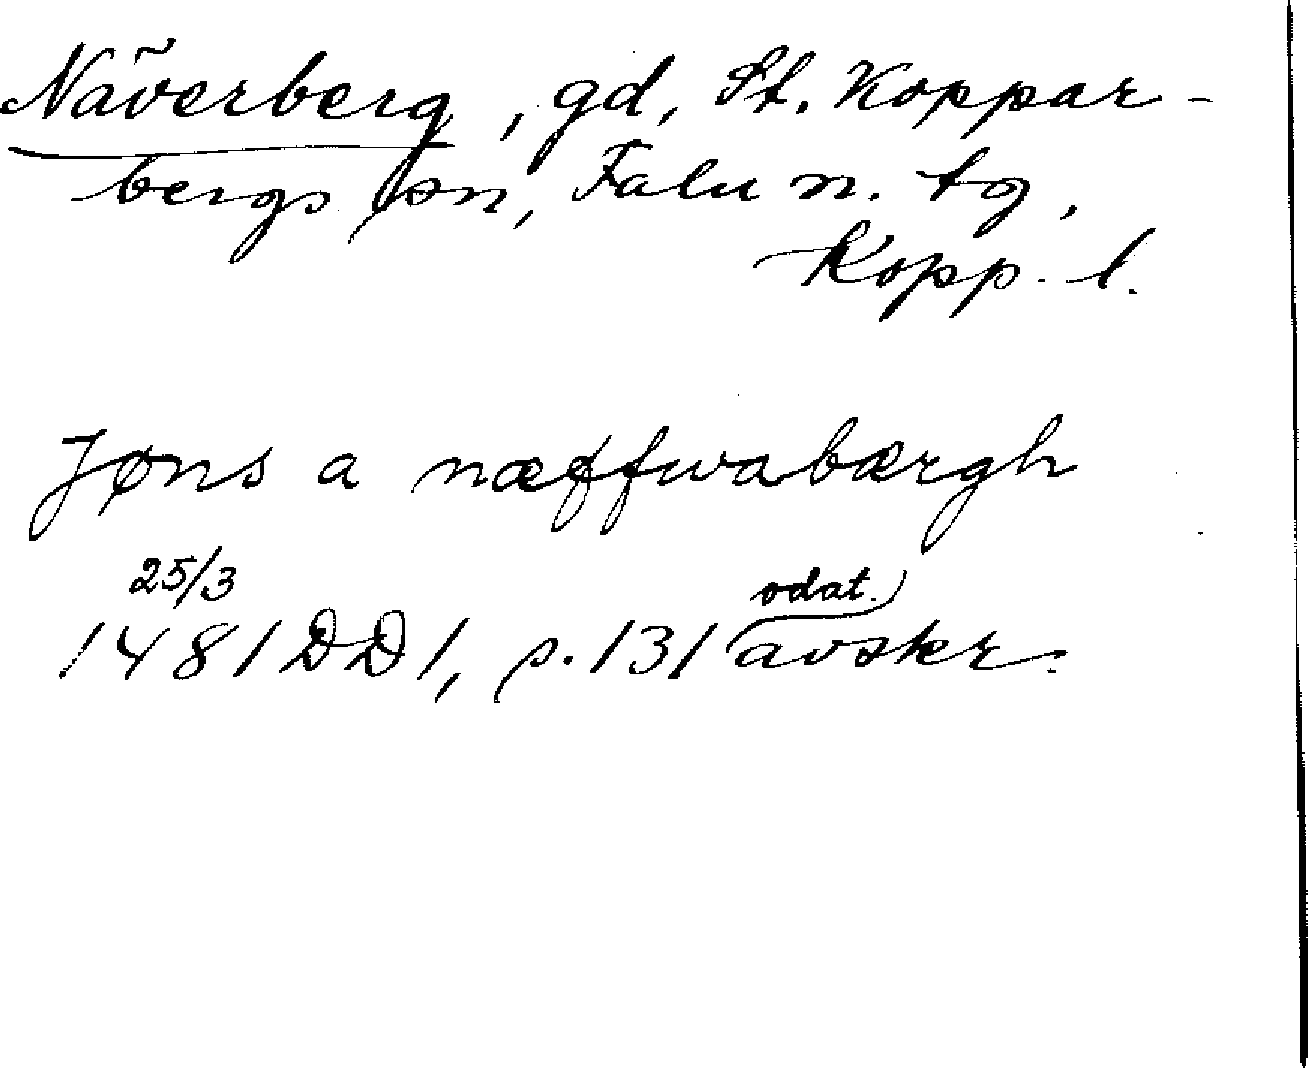 Näverberg, gd, St. Koppar-
bergs sn, Falu n. tg,
Kopp. l.
Jøns a næffwabærgh
25/3
odat.
1481 DD 1, s. 131 avskr.